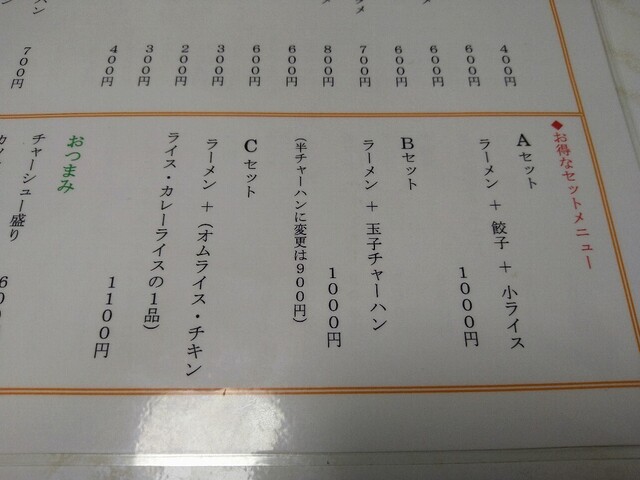 400円
600円
600円
600円
700円
800円
600円
600円
300円
200円
300円
400円
700円
◆お得なセットメニュー
Aセット
ラーメン + 餃子 + 小ライス
1000円
Bセット
ラーメン + 玉子チャーハン
1000円
(半チャーハンに変更は900円)
Cセット
ラーメン + (オムライス・チキン
ライス・カレーライスの1品)
1100円
おつまみ
チャーシュー盛り